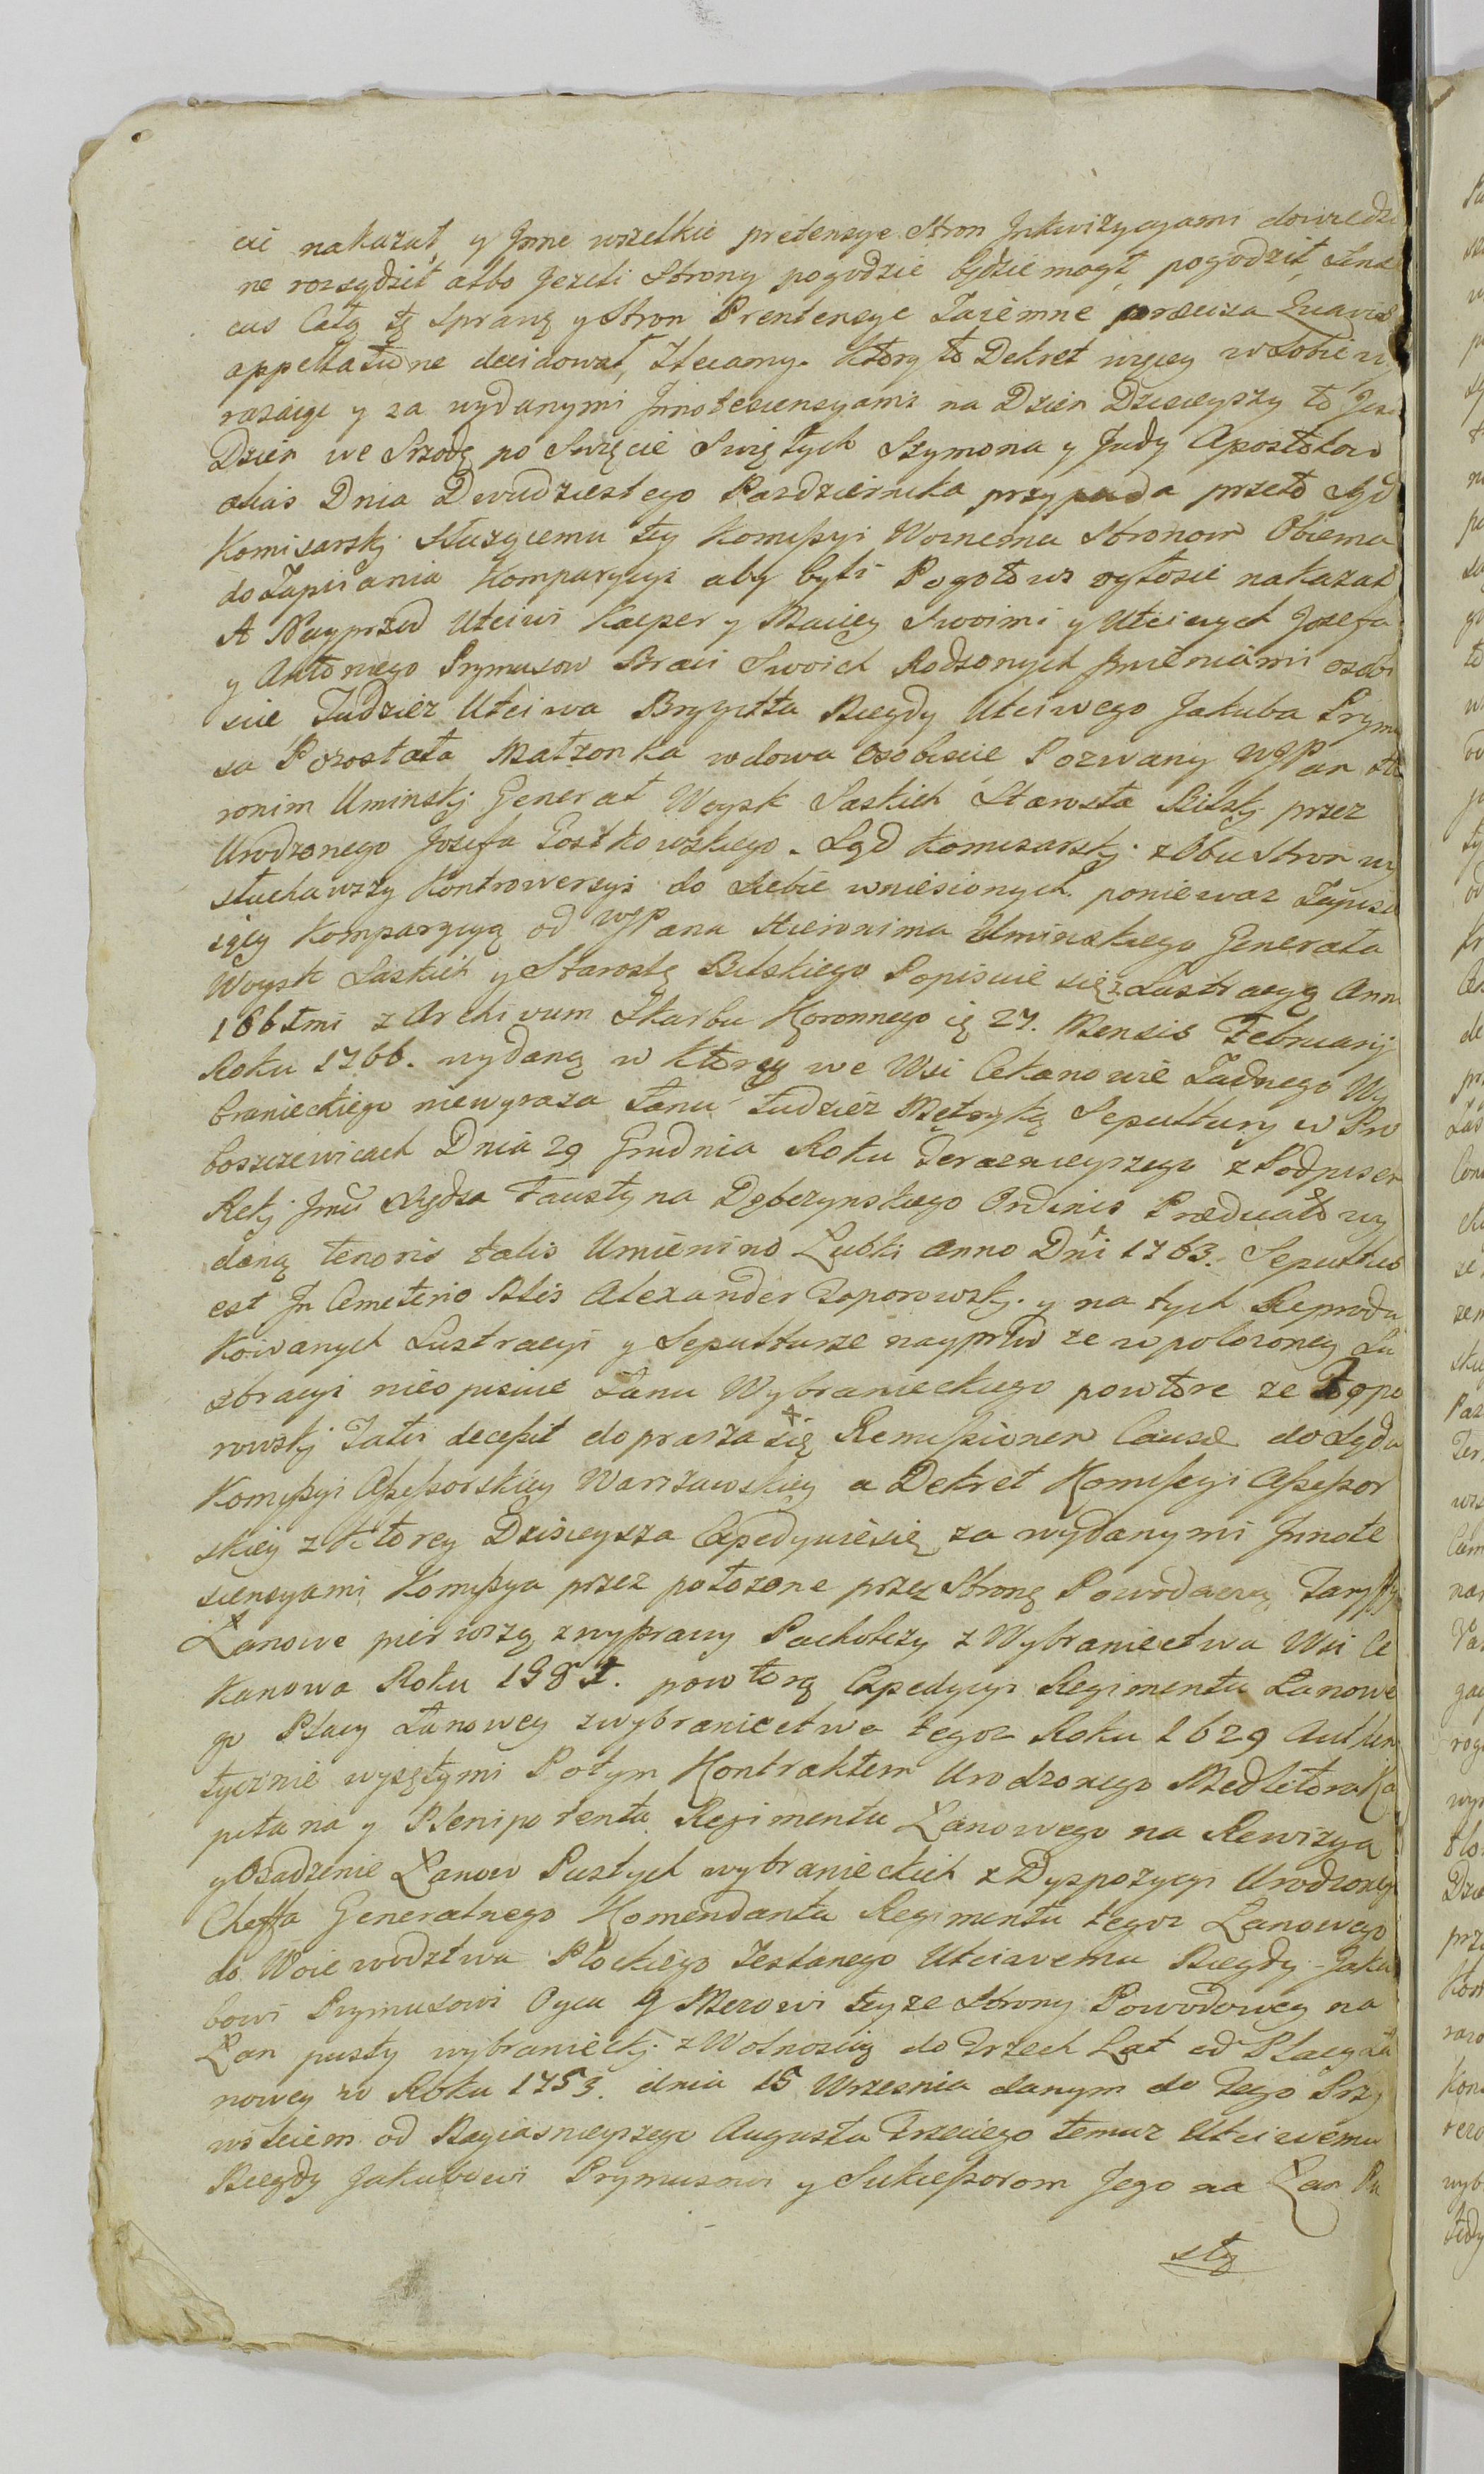 cić nakazał, y Jnne wszelkie pretensye Stron Jnkwizycyami dowiedzi
ne rozsądzić albo Jeżeli Strony pogodzić będzie mogł, pogodzić
cus Całą tę Sprawę y Stron Pretensye Taiemne
appellatione decidował, Zlecamy. Ktory to Dekret więcey w Sobie wy
rażaiąc y za wydanymi Jnnotescencyami na Dzień Dzisieyszy to Jest
Dzień we Srzodę po Swięcie Swiętych Szymona y Judy Apostołow
alias Dnia Dwudziestego Pazdziernika przypada przeto Sąd
Komisarskj Służącemu tey Kommissyi Woznemu Stronom Obiema
do Zapisania Komparycyi aby byli Pogotowi ogłosić nakazał
A Nayprzod Utciwi Kacper y Maciey Swoimi y Utciwych Jozefa
y Antoniego Prymusow Braci Swoich Rodzonych Jmieniami osobi
scie Tudzież Utciwa Brygitta Niegdy Utciwego Jakuba Prymu
sa Pozostała Małżonka wdowa Osobiscie Pozwany WJPan Hie
ronim Uminskj Generał Woysk Saskich Starosta Bilskj przez
Urodzonego Jozefa Postkowskiego. Sąd Komisarskj z Obu Stron wy
słuchawszy Kontrowersyi do Siebie wniesionych ponieważ Zapisu
iący Komparycyą od WJPana Hieronima Uminskiego Generała
Woysk Saskich y Starostę Bilskiego Popisuie się z Lustracyą Anni
1661mi z Archivum Skarbu Koronnego ię 27. Mensis Februarij
Roku 1766. wydaną w ktorey we Wsi Cekanowie Żadnego Wy
branieckiego niewyraża Łanu tudzież Metryką Sepultury w Pro
boszczewicach Dnia 29 Grudnia Roku Teraznieyszego z Podpisem
Rękj Jmci Xiędza Faustyna Dębczynskiego Ordinis Prædicato wy
daną tenoris talis Umienino Łubki Anno Dni 1763. Sepultus
est Jn Cemeterio Nlis Alexander Toporowskj. y na tych Reprodu
kowanych Lustracyi y Sepulturze nayprzod że w położoney Lu
stracyi nieopisuie Łanu Wybranieckiego powtore że Topo
rowskj Fatis decessit doprasza się Remissionem Causæ do Sądu
Kommissyi Assessorskiey Warszawskiey a Dekret Kommissyi Assessor
skiey z Ktorey Dzisieysza Expedyuie się za wydanymi Jnnote
scencyami Kommissya przez położone przez Stronę Powodową Taryffy
Łanowe pierwszą z wyprawy Pacholczy z Wybraniectwa Wsi Ce
kanowa Roku powtorą Expedycyi Regimentu Łanowe
go Płacy Łanowey z wybraniectwa tegoz Roku 1629 Authen
tycznie wyjętymi Potym Kontraktem Urodzonego Ka
pitana y Plenipotenta Regimentu Łanowego na Rewizyą
y Osadzenie Łanow Pustych wybranieckich z Dyspozycyi Urodzonego
Cheffa Generalnego Komendanta Regimentu tegoz Łanowego
do Woiewodztwa Płockiego Zesłanego Utciwemu Niegdy Jaku
bowi Prymusowi Oycu y Mężowi teyże Strony Powodowey na
Łan pusty wybranieckj z Wolnoscią do Trzech Lat od Płacy Ła
nowey w Roku 1753. dnia 15 Wrzesnia danym do tego Przy
wileiem od Nayiasnieyszego Augusta Trzeciego temuz Utciwemu
Niegdy Jakubowi Prymusowi y Sukcessorom Jego na Łan Pu
sty